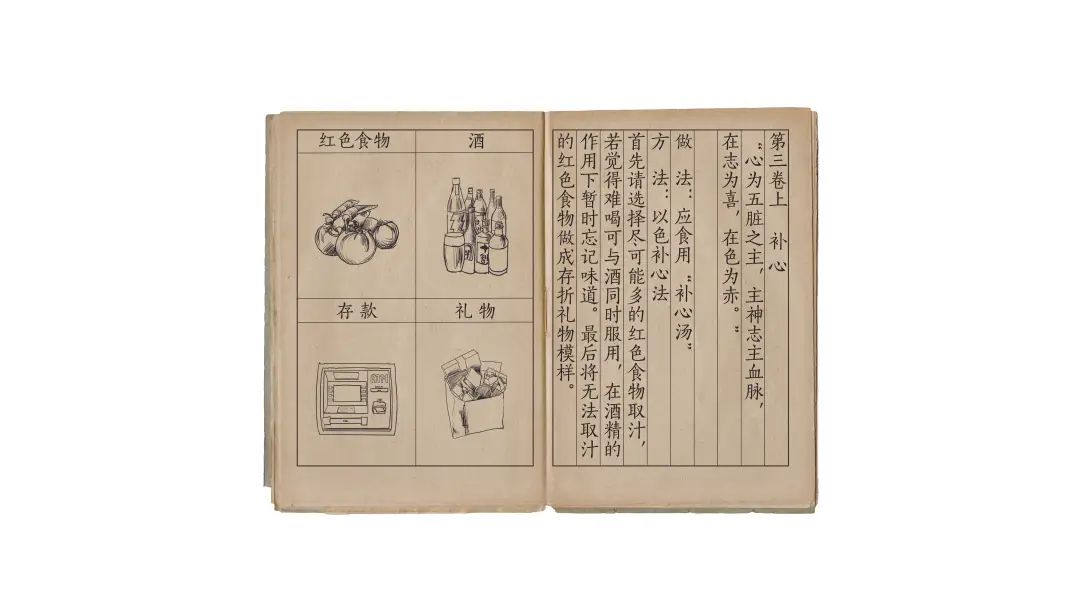 第三卷上 补心
“心为五脏之主，主神志主血脉，
在志为喜，在色为赤。”
做 法：应食用“补心汤”
方 法：以色补心法
首先请选择尽可能多的红色食物取汁，
若觉得难喝可与酒同时服用，在酒精的
作用下暂时忘记味道。最后将无法取汁
的红色食物做成存折礼物模样。
红色食物
酒
存款
礼物
ATM